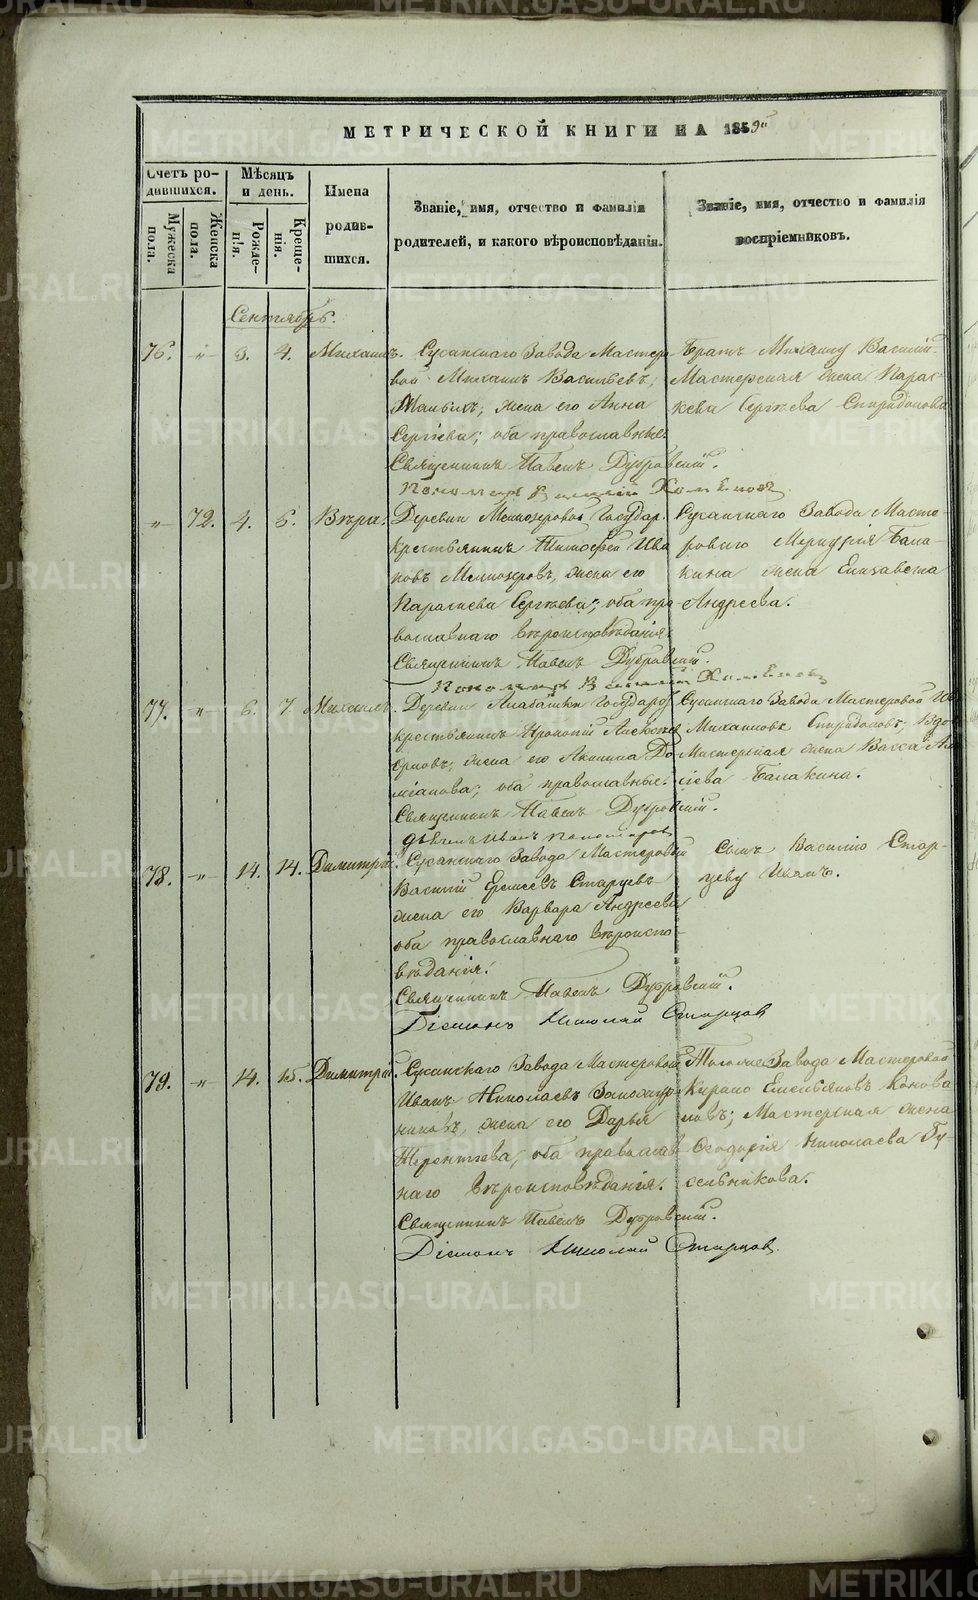 МЕТРИЧЕСКОЙ КНИГИ НА 1859й
Счетъ ро-
дившихся.
Мужеска
пола.
Женска
пола.
Мѣсяцъ
и день.
Рожде-
нія.
Креще-
нія.
Имена
родив-
шихся.
Званіе, имя, отчество и фамилія
родителей, и какого вѣроисповѣданія.
Званіе, имя, отчество и фамилія
воспріемниковъ.
Сентябрь.
76. „ 3. 4. Михаилъ.
Сусанскаго Завода Мастеро
вой Михаилъ Васильевъ,
жена его Анна
Сергіева; оба православные.
Священникъ Павелъ Дубровскій.
Пономарь Василій
Братъ Михаилу Василій
Мастерская жена Парас-
кева Сергѣева Спиридонова
„ 72. 4. 6. Вѣра.
Деревни Государ.
крестьянинъ Тимофей Ива
новъ жена его
Параскева Сергѣева; оба пра
вославнаго вѣроисповѣданія.
Священникъ Павелъ Дубровскій.
Пономарь Василій
Сусанскаго Завода Масте-
роваго Меркурія Бала-
кина жена Елисавета
Андреева.
77. „ 6. 7. Михаилъ.
Деревни Алабашки Государ
крестьянинъ Прокопій Алексѣев
жена его Акилина До
міанова; оба православные.
Священникъ Павелъ Дубровскій.
Дьячекъ Иванъ Пономаревъ
Сусанскаго Завода Мастеровой
Михаиловъ Спиридоновъ; Вдов
Мастерская жена Васса
Балакина.
78. „ 14. 14. Димитрій.
Сусанскаго Завода Мастеровый
Василій Старцевъ
жена его Варвара Андреева
оба православнаго вѣроиспо-
вѣданія.
Священникъ Павелъ Дубровскій.
Діаконъ Николай Старцов
Сынъ Василію Стар-
цеву Иванъ.
79. „ 14. 15. Димитрій.
Сусанскаго Завода Мастеровой
Иванъ Николаевъ
жена его Дарья
Терентьева, оба православ
наго вѣроисповѣданія.
Священникъ Павелъ Дубровскій.
Діаконъ Николай Старцов.
Тогоже Завода Мастеровой
Кирило Емельяновъ Конова
ловъ; Мастерская жена
Ѳеодосія Николаева Гу-
сельникова.
METRIKI.GASO-URAL.RU